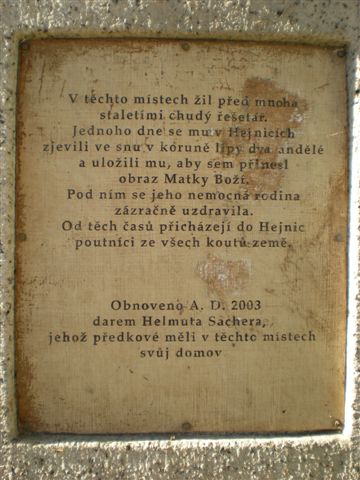 V těchto místech žil před mnoha
staletími chudý řešetář.
Jednoho dne se mu v Hejnicích
zjevili ve snu v koruně lípy dva andělé
a uložili mu, aby sem přinesl
obraz Matky Boží.
Pod ním se jeho nemocná rodina
zázračně uzdravila.
Od těch časů přicházejí do Hejnic
poutníci ze všech koutů země.
Obnoveno A. D. 2003
darem Helmuta Sachera,
jehož předkové měli v těchto místech
svůj domov